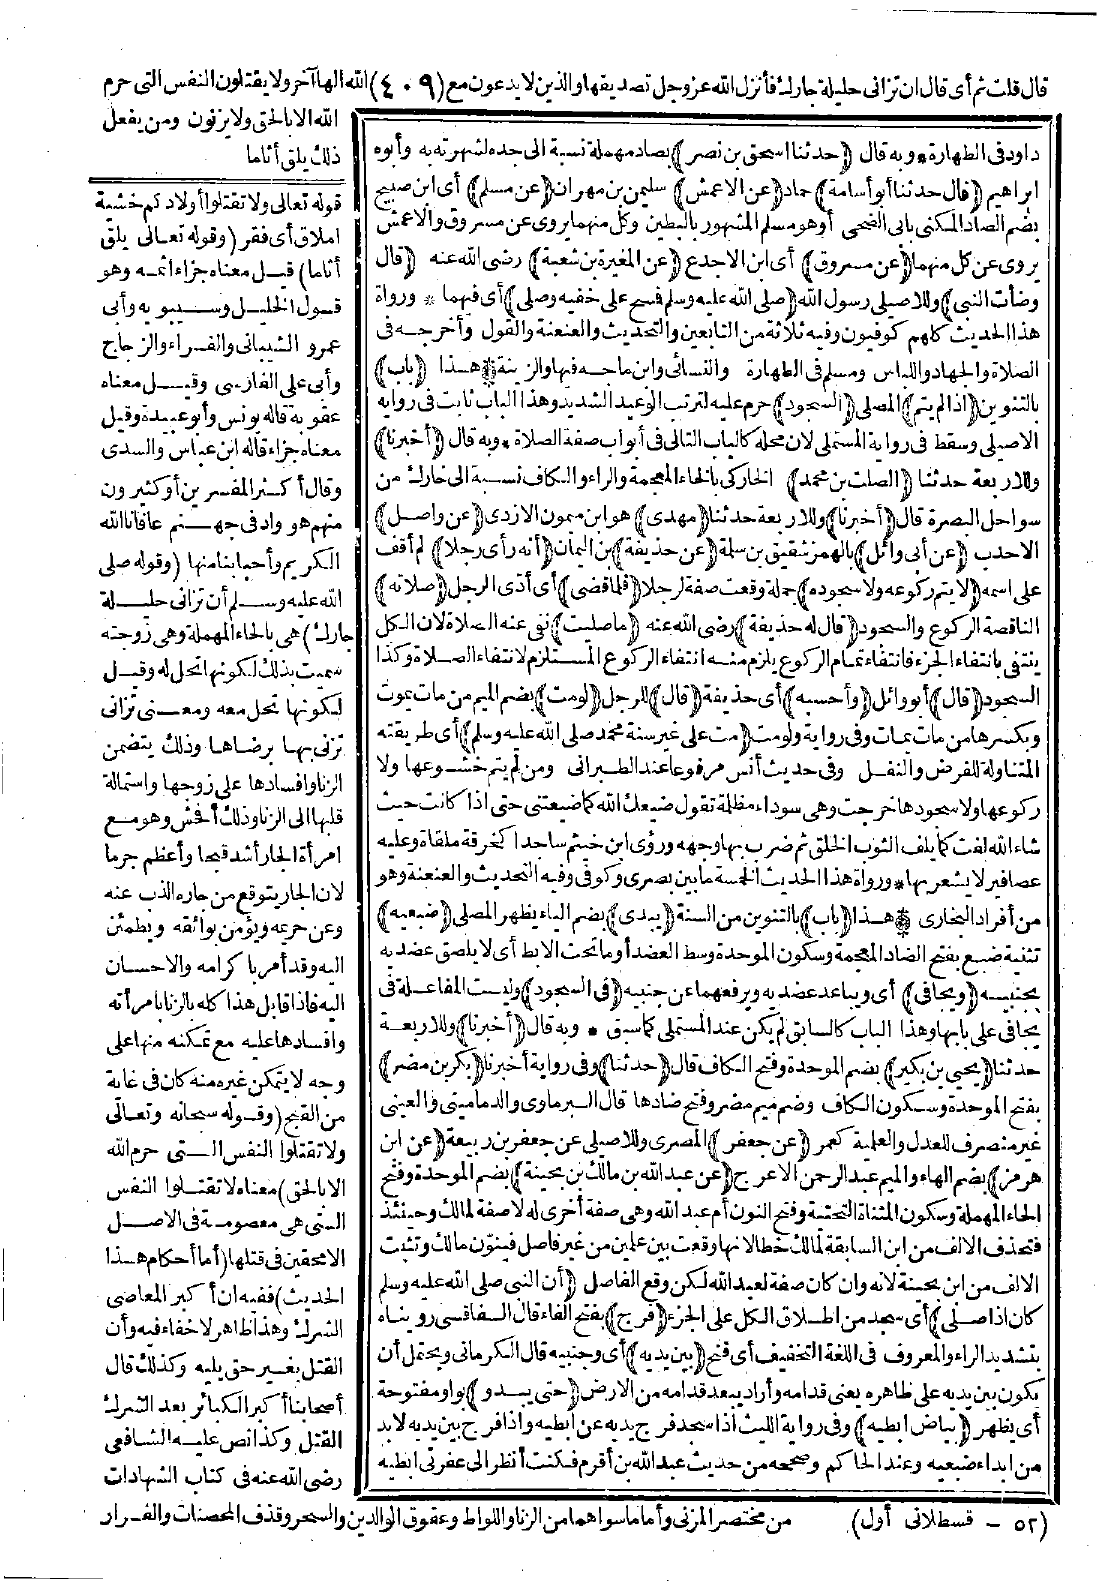 قال قلت ثم أى قال ان تزانى حليلة جارك فأنزل الله عز وجل تصديقها والذين لا يدعون مع (٤٠٩) الله الها آخر ولا يقتلون النفس التى حرم
الله الا بالحق ولا يزنون ومن يفعل
ذلك يلق أثاما
قوله تعالى ولا تقتلوا أولادكم خشية
املاق أى فقر (وقوله تعالى يلق
أثاما) قيل معناه جزاء اثمه وهو
قول الخليل وسيبويه وأبى
عمرو الشيبانى والفراء والزجاج
وأبى على الفارسى وقيل معناه
عقوبة قاله يونس وأبو عبيدة وقيل
معناه جزاء قاله ابن عباس والسدى
وقال أكثر المفسرين أو كثيرون
منهم هو واد فى جهنم عافانا الله
الكريم وأحبابنا منها (وقوله صلى
الله عليه وسلم أن تزانى حليلة
جارك) هى بالحاء المهملة وهى زوجته
سميت بذلك لكونها تحل له وقيل
لكونها تحل معه ومعنى تزانى
تزنى بها برضاها وذلك يتضمن
الزنا وافسادها على زوجها واستمالة
قلبها الى الزنا وذلك أفحش وهو مع
امرأة الجار أشد قبحا وأعظم جرما
لان الجار يتوقع من جاره الذب عنه
وعن حريمه ويؤمن بوائقه ويطمئن
اليه وقد أمر باكرامه والاحسان
اليه فاذا قابل هذا كله بالزنا بامرأته
وافسادها عليه مع تمكنه منها على
وجه لا يتمكن غيره منه كان فى غاية
من القبح (وقوله سبحانه وتعالى
ولا تقتلوا النفس التى حرم الله
الا بالحق) معناه لا تقتلوا النفس
التى هى معصومة فى الاصل
الا محقين فى قتلها (أما أحكام هذا
الحديث) ففيه ان أكبر المعاصى
الشرك وهذا ظاهر لا خفاء فيه وأن
القتل بغير حق يليه وكذلك قال
أصحابنا أكبر الكبائر بعد الشرك
القتل وكذا نص عليه الشافعى
رضى الله عنه فى كتاب الشهادات
داود فى الطهارة * وبه قال (حدثنا اسحق بن نصر) بصاد مهملة نسبة الى جده لشهرته به وأبوه
ابراهيم (قال حدثنا أبو أسامة) حماد (عن الاعمش) سليمن بن مهران (عن مسلم) أى ابن صبيح
بضم الصاد المكنى بابى الضحى أو هو مسلم المشهور بالبطين وكل منهما يروى عن مسروق والاعمش
يروى عن كل منهما (عن مسروق) أى ابن الاجدع (عن المغيرة بن شعبة) رضى الله عنه (قال
وضأت النبى) وللاصيلى رسول الله (صلى الله عليه وسلم فمسح على خفيه وصلى) أى فيهما * ورواة
هذا الحديث كلهم كوفيون وفيه ثلاثة من التابعين والتحديث والعنعنة والقول وأخرجه فى
الصلاة والجهاد واللباس ومسلم فى الطهارة والنسائى وابن ماجه فيها والزينة * هذا (باب)
بالتنوين (اذا لم يتم) المصلى (السجود) حرم عليه لترتب الوعيد الشديد وهذا الباب ثابت فى رواية
الاصيلى وسقط فى رواية المستملى لان محله كالباب التالى فى أبواب صفة الصلاة * وبه قال (أخبرنا)
وللاربعة حدثنا (الصلت بن محمد) الخاركى بالخاء المعجمة والراء والكاف نسبة الى خارك من
سواحل البصرة قال (أخبرنا) وللاربعة حدثنا (مهدى) هو ابن ميمون الازدى (عن واصل)
الاحدب (عن أبى وائل) بالهمز شقيق بن سلمة (عن حذيفة) بن اليمان (أنه رأى رجلا) لم أقف
على اسمه (لا يتم ركوعه ولا سجوده) جملة وقعت صفة لرجلا (فلما قضى) أى أدّى الرجل (صلاته)
الناقصة الركوع والسجود (قال له حذيفة) رضى الله عنه (ما صليت) نفى عنه الصلاة لان الكل
ينتفى بانتفاء الجزء فانتفاء تمام الركوع يلزم منه انتفاء الركوع المستلزم لانتفاء الصلاة وكذا
السجود (قال) أبو وائل (وأحسبه) أى حذيفة (قال) للرجل (لومت) بضم الميم من مات يموت
وبكسرها من مات يمات وفى رواية ولومت (مت على غير سنة محمد صلى الله عليه وسلم) أى طريقته
المتناولة للفرض والنفل وفى حديث أنس مرفوعا عند الطبرانى ومن لم يتم خشوعها ولا
ركوعها ولا سجودها خرجت وهى سوداء مظلمة تقول ضيعك الله كما ضيعتنى حتى اذا كانت حيث
شاء الله لفت كما يلف الثوب الخلق ثم ضرب بها وجهه ورؤى ابن خثيم ساجدا كخرقة ملقاة وعليه
عصافير لا يشعر بها * ورواة هذا الحديث الخمسة ما بين بصرى وكوفى وفيه التحديث والعنعنة وهو
من أفراد البخارى * هذا (باب) بالتنوين من السنة (يبدى) بضم الياء يظهر المصلى (ضبعيه)
تثنية ضبع بفتح الضاد المعجمة وسكون الموحدة وسط العضد أو ما تحت الابط أى لا يلصق عضديه
بجنبيه (ويجافى) أى ويباعد عضديه ويرفعهما عن جنبيه (فى السجود) وليست المفاعلة فى
يجافى على بابها وهذا الباب كالسابق لم يكن عند المستملى كما سبق * وبه قال (أخبرنا) وللاربعة
حدثنا (يحيى بن بكير) بضم الموحدة وفتح الكاف قال (حدثنا) وفى رواية أخبرنا (بكر بن مضر)
بفتح الموحدة وسكون الكاف وضم ميم مضر وفتح ضادها قال البرماوى والدمامينى والعينى
غير منصرف للعدل والعلمية كعمر (عن جعفر) المصرى وللاصيلى عن جعفر بن ربيعة (عن ابن
هرمز) بضم الهاء والميم عبد الرحمن الاعرج (عن عبد الله بن مالك بن بحينة) بضم الموحدة وفتح
الحاء المهملة وسكون المثناة التحتية وفتح النون أم عبد الله وهى صفة أخرى له لا صفة لمالك وحينئذ
فتحذف الالف من ابن السابقة لمالك خطا لانها وقعت بين علمين من غير فاصل فينون مالك وتثبت
الالف من ابن بحينة لانه وان كان صفة لعبد الله لكن وقع الفاصل (أن النبى صلى الله عليه وسلم
كان اذا صلى) أى سجد من اطلاق الكل على الجزء (فرج) بفتح الفاء قال السفاقسى رويناه
بتشديد الراء والمعروف فى اللغة التخفيف أى فتح (بين يديه) أى وجنبيه قال الكرمانى ويحتمل أن
يكون بين يديه على ظاهره يعنى قدامه وأراد يبعد قدامه من الارض (حتى يبدو) بواو مفتوحة
أى يظهر (بياض ابطيه) وفى رواية الليث اذا سجد فرج يديه عن ابطيه واذا فرج بين يديه لا بد
من ابداء ضبعيه وعند الحاكم وصححه من حديث عبد الله بن أقرم فكنت أنظر الى عفرتى ابطيه
(٥٢ - قسطلانى أول) من مختصر المزنى وأما ما سواهما من الزنا واللواط وعقوق الوالدين والسحر وقذف المحصنات والفرار